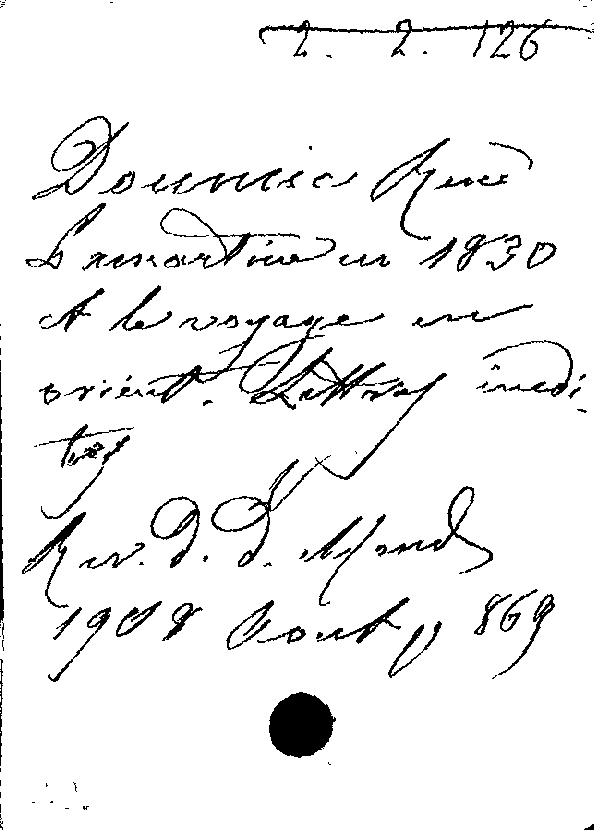 2. 2. 126
Doumic René
Lamartine en 1830
et le voyage en
orient. Lettres inédi-
tes
Rev. d. d. Mond
1908 Aout p 869